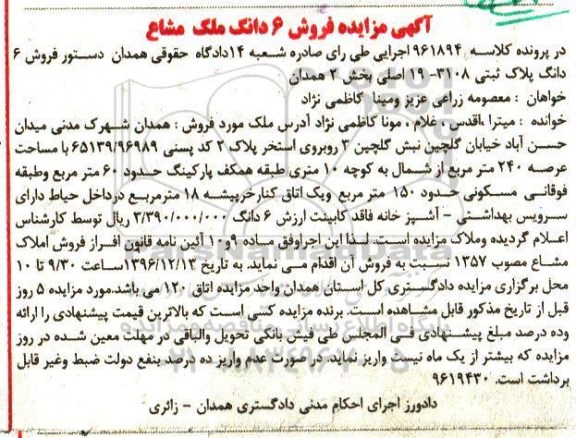 آگهی مزایده فروش ۶ دانگ ملک مشاع
در پرونده کلاسه ۹۶۱۸۹۴ اجرایی طی رای صادره شعبه ۱۴دادگاه حقوقی همدان دستور فروش ۶
دانگ پلاک ثبتی ۳۱۰۸- ۱۹ اصلی بخش ۲ همدان
خواهان : معصومه زراعی عزیز ومینا کاظمی نژاد
خوانده : میترا ،اقدس ، غلام ، مونا کاظمی نژاد آدرس ملک مورد فروش : همدان شهرک مدنی میدان
حسن آباد خیابان گلچین نبش گلچین ۳ روبروی استخر پلاک ۲ کد پستی ۶۵۱۳۹/۹۶۹۸۹ با مساحت
عرصه ۲۴۰ متر مربع از شمال به کوچه ۱۰ متری طبقه همکف پارکینگ حدود ۶۰ متر مربع وطبقه
فوقانی مسکونی حدود ۱۵۰ متر مربع ویک اتاق کنارخرپیشه ۱۸ مترمربع درداخل حیاط دارای
سرویس بهداشتی - آشپز خانه فاقد کابینت ارزش ۶ دانگ ۳/۳۹۰/۰۰۰/۰۰۰ ریال توسط کارشناس
اعلام گردیده وملاک مزایده است. لذا این اجراوفق ماده ۹و۱۰ آئین نامه قانون افراز فروش املاک
مشاع مصوب ۱۳۵۷ نسبت به فروش آن اقدام می نماید. به تاریخ ۱۳۹۶/۱۲/۱۳ساعت ۹/۳۰ تا ۱۰
محل برگزاری مزایده دادگستری کل استان همدان واحد مزایده اتاق ۱۲۰ می باشد.مورد مزایده ۵ روز
قبل از تاریخ مذکور قابل مشاهده است. برنده مزایده کسی است که بالاترین قیمت پیشنهادی را ارائه
وده درصد مبلغ پیشنهادی فی المجلس طی فیش بانکی تحویل والباقی در مهلت معین شده در روز
مزایده که بیشتر از یک ماه نیست واریز نماید. درصورت عدم واریز ده درصد بنفع دولت ضبط وغیر قابل
برداشت است. ۹۶۱۹۴۳۰
دادورز اجرای احکام مدنی دادگستری همدان - زائری